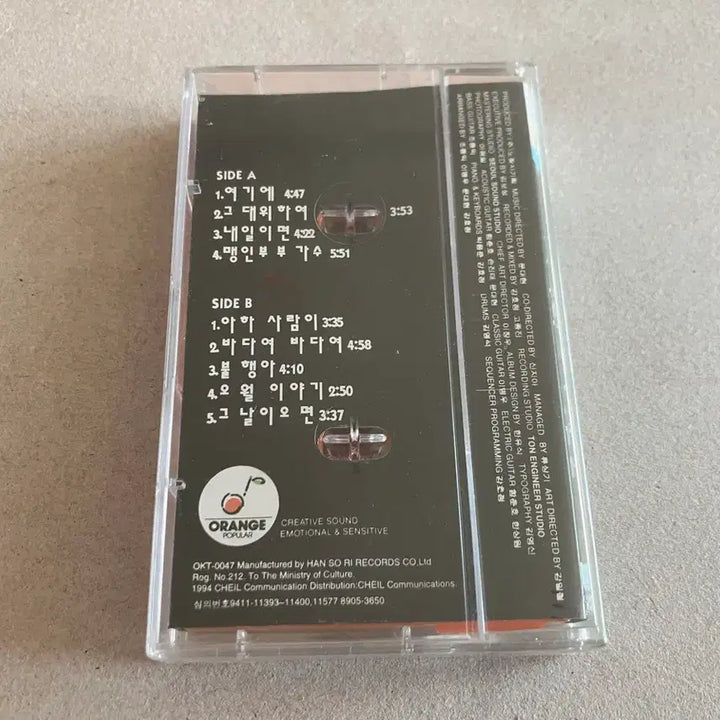 SIDE A
1.여기에 4:47
2.그 대위하여 3:53
3.내일이면 4:22
4.맹인부부 가수 5:51
SIDE B
1.아하 사람이 3:35
2.바다여 바다여 4:58
3.불 행아 4:10
4.오월 이야기 2:50
5.그 날이오면 3:37
ORANGE
POPULAR
CREATIVE SOUND
EMOTIONAL & SENSITIVE
OKT-0047 Manufactured by HAN SO RI RECORDS CO.Ltd
Rog. No.212. To The Ministry of Culture.
1994 CHEiL Communication Distribution:CHEIL Communications.
심의번호9411-11393–11400,11577 8905-3650
PRODUCED BY MUSIC DIRECTED BY 문대현 CO-DIRECTED BY 신지아 MANAGED BY 류상기 ART DIRECTED BY
EXECUTIVE PRODUCED BY RECORDED & MIXED BY 김호정 고종진 RECORDING STUDIO TON ENGINEER STUDIO
MASTERING STUDIO SEOUL SOUND STUDIO CHIEF ART DIRECTOR 이정우 ALBUM DESIGN BY 한유식 TYPOGRAPHY 김영신
PHOTOGRAPHY ACOUSTIC GUITAR 함춘호 손진태 문대현 CLASSIC GUITAR 이병우 ELECTRIC GUITAR 함춘호 한상원
BASS GUITAR 조동익 PIANO & KEYBOARDS 박용준 김호정 DRUMS 김영석 SEQUENCER PROGRAMMING 김호정
ARRANGED BY 조동익 이병우 문대현 김호정